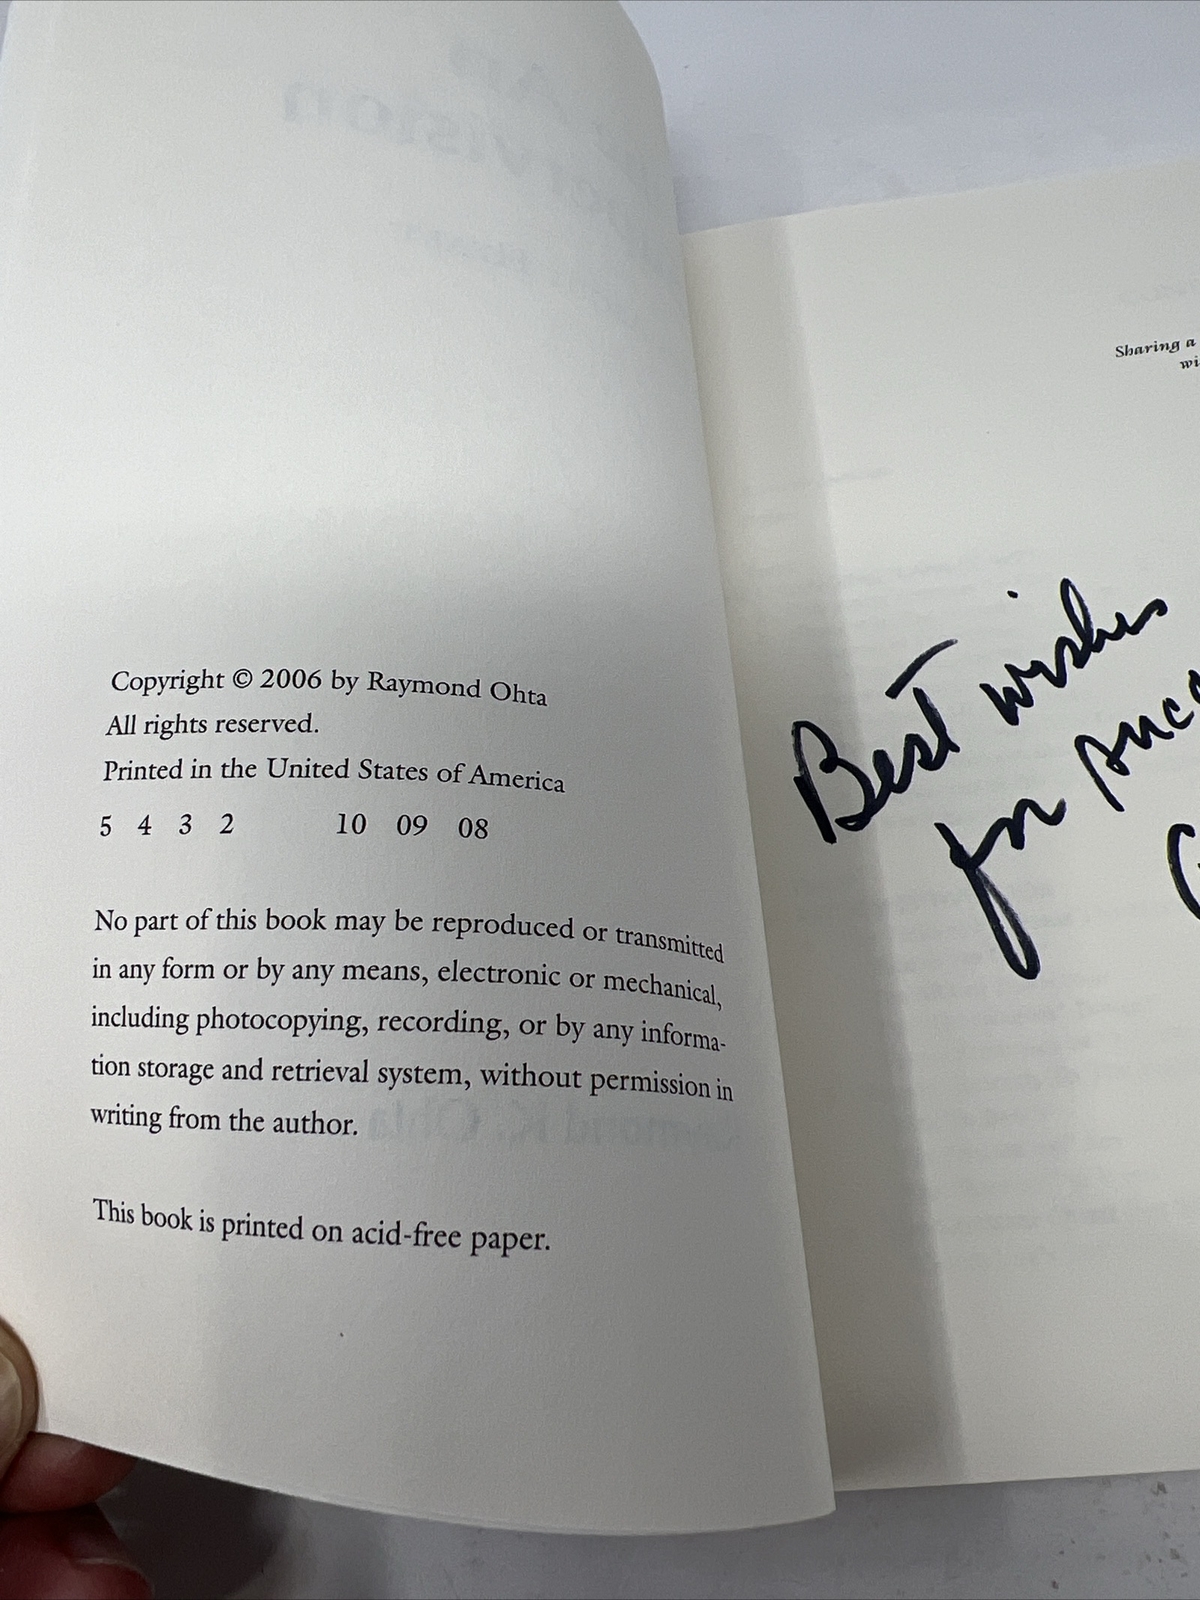 Copyright © 2006 by Raymond Ohta
All rights reserved.
Printed in the United States of America
5 4 3 2 10 09 08
No part of this book may be reproduced or transmitted
in any form or by any means, electronic or mechanical,
including photocopying, recording, or by any informa-
tion storage and retrieval system, without permission in
writing from the author.
This book is printed on acid-free paper.
Sharing a
wi
Best wishes
for succ